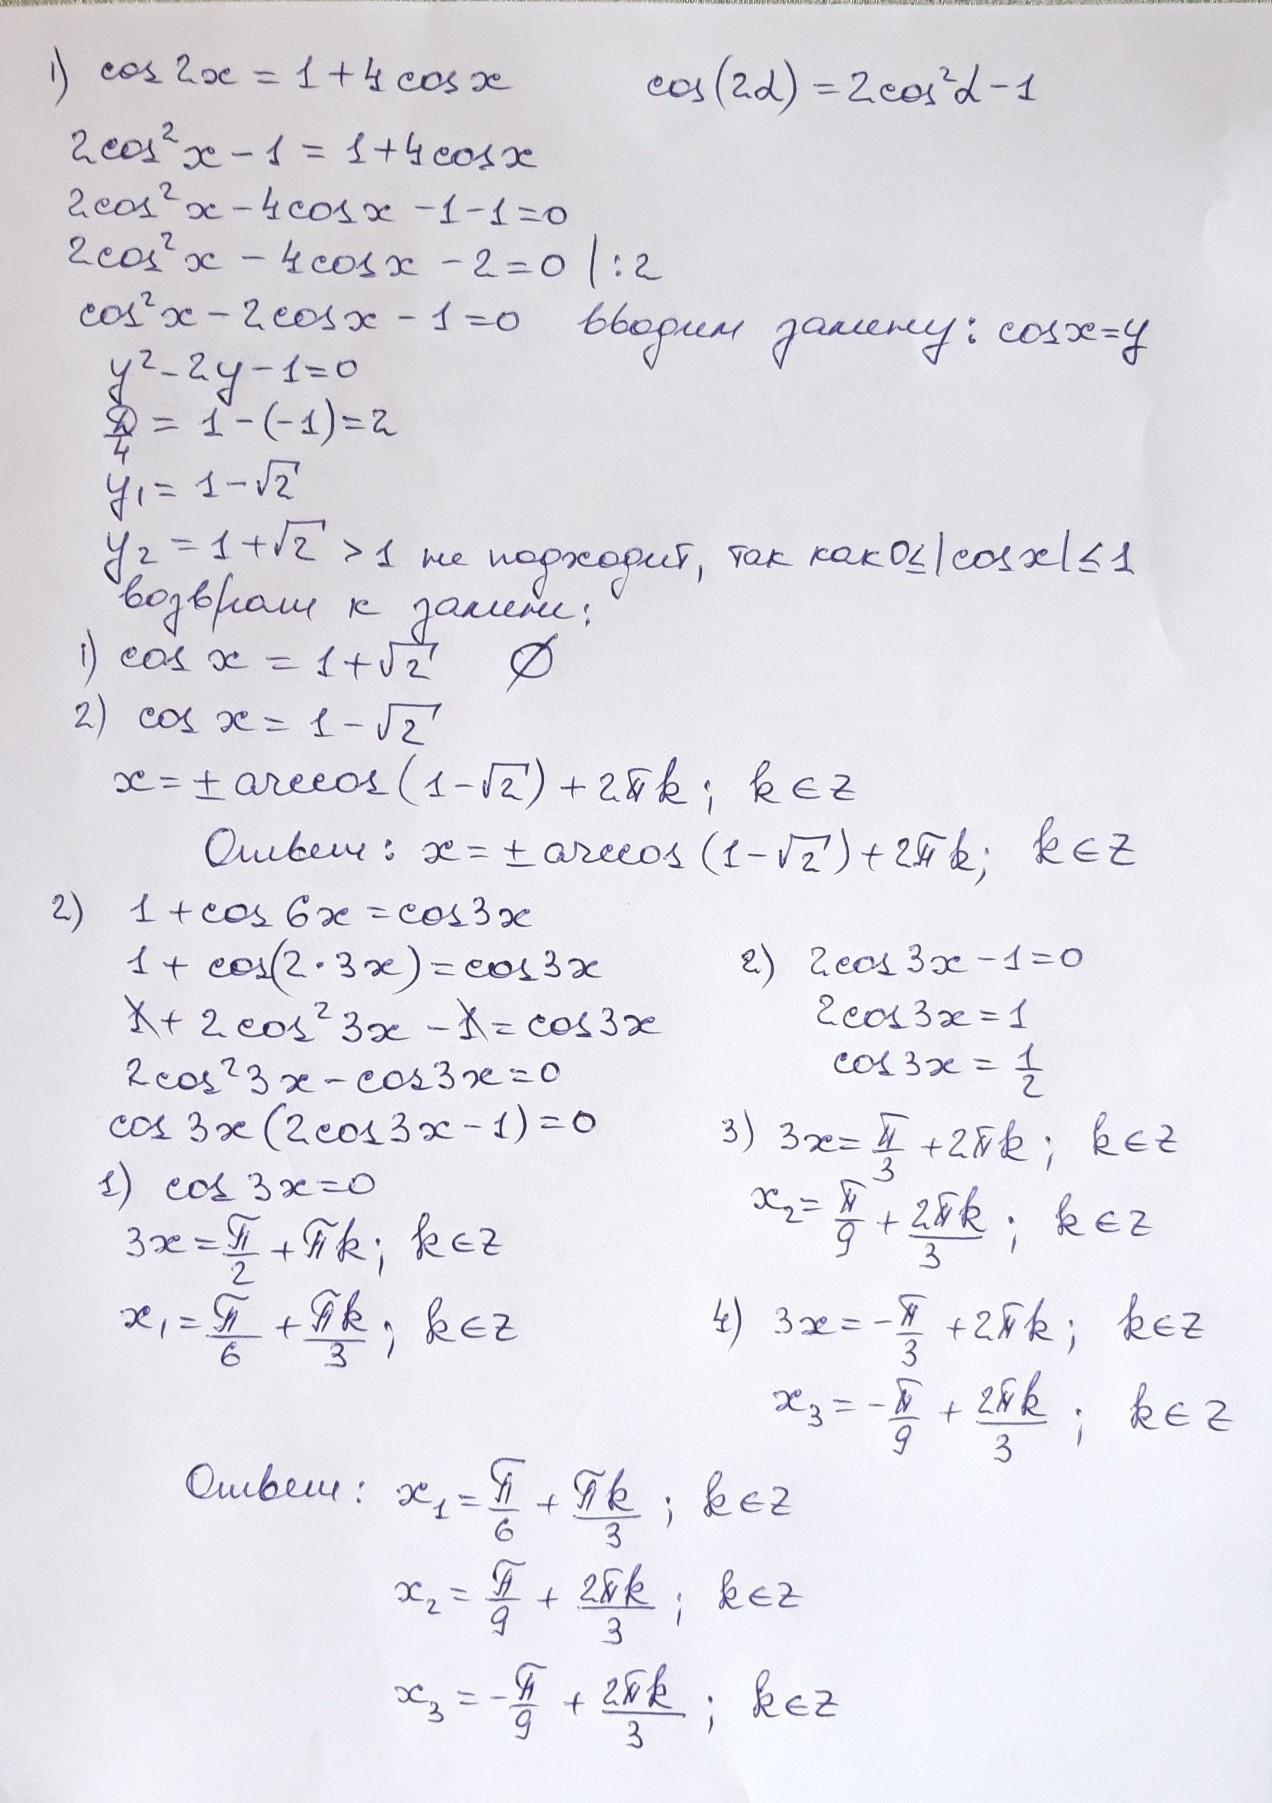 1) cos 2x = 1 + 4 cos x
cos(2α) = 2cos²α - 1
2cos²x - 1 = 1 + 4cosx
2cos²x - 4cosx - 1 - 1 = 0
2cos²x - 4cosx - 2 = 0 | : 2
cos²x - 2cosx - 1 = 0 вводим замену: cosx = y
y² - 2y - 1 = 0
D/4 = 1 - (-1) = 2
y₁ = 1 - √2
y₂ = 1 + √2 > 1 не подходит, так как 0 ≤ |cos x| ≤ 1
возврат к замене:
1) cos x = 1 + √2 ∅
2) cos x = 1 - √2
x = ± arccos (1 - √2) + 2πk; k ∈ Z
Ответ: x = ± arccos (1 - √2) + 2πk; k ∈ Z
2) 1 + cos 6x = cos3x
1 + cos(2 · 3x) = cos3x
1 + 2cos²3x - 1 = cos3x
2cos²3x - cos3x = 0
cos 3x (2cos3x - 1) = 0
1) cos 3x = 0
3x = π/2 + πk; k ∈ Z
x₁ = π/6 + πk/3; k ∈ Z
2) 2cos 3x - 1 = 0
2cos3x = 1
cos3x = 1/2
3) 3x = π/3 + 2πk; k ∈ Z
x₂ = π/9 + 2πk/3; k ∈ Z
4) 3x = -π/3 + 2πk; k ∈ Z
x₃ = -π/9 + 2πk/3; k ∈ Z
Ответ: x₁ = π/6 + πk/3; k ∈ Z
x₂ = π/9 + 2πk/3; k ∈ Z
x₃ = -π/9 + 2πk/3; k ∈ Z